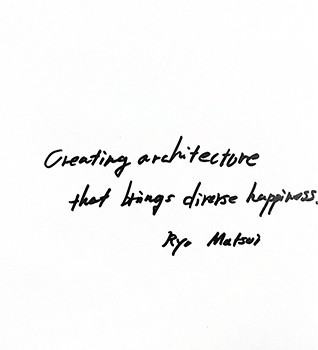 Creating architecture
that brings diverse happiness.
Ryo Matsui